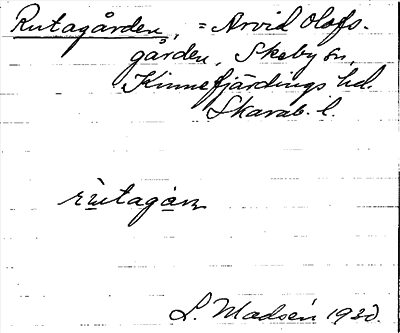 Rutagården, = Arvid Olofs-
gården, Skeby sn,
Kinnefjärdings hd.
Skarab. l.
rutagan
L. Madsén 1930.